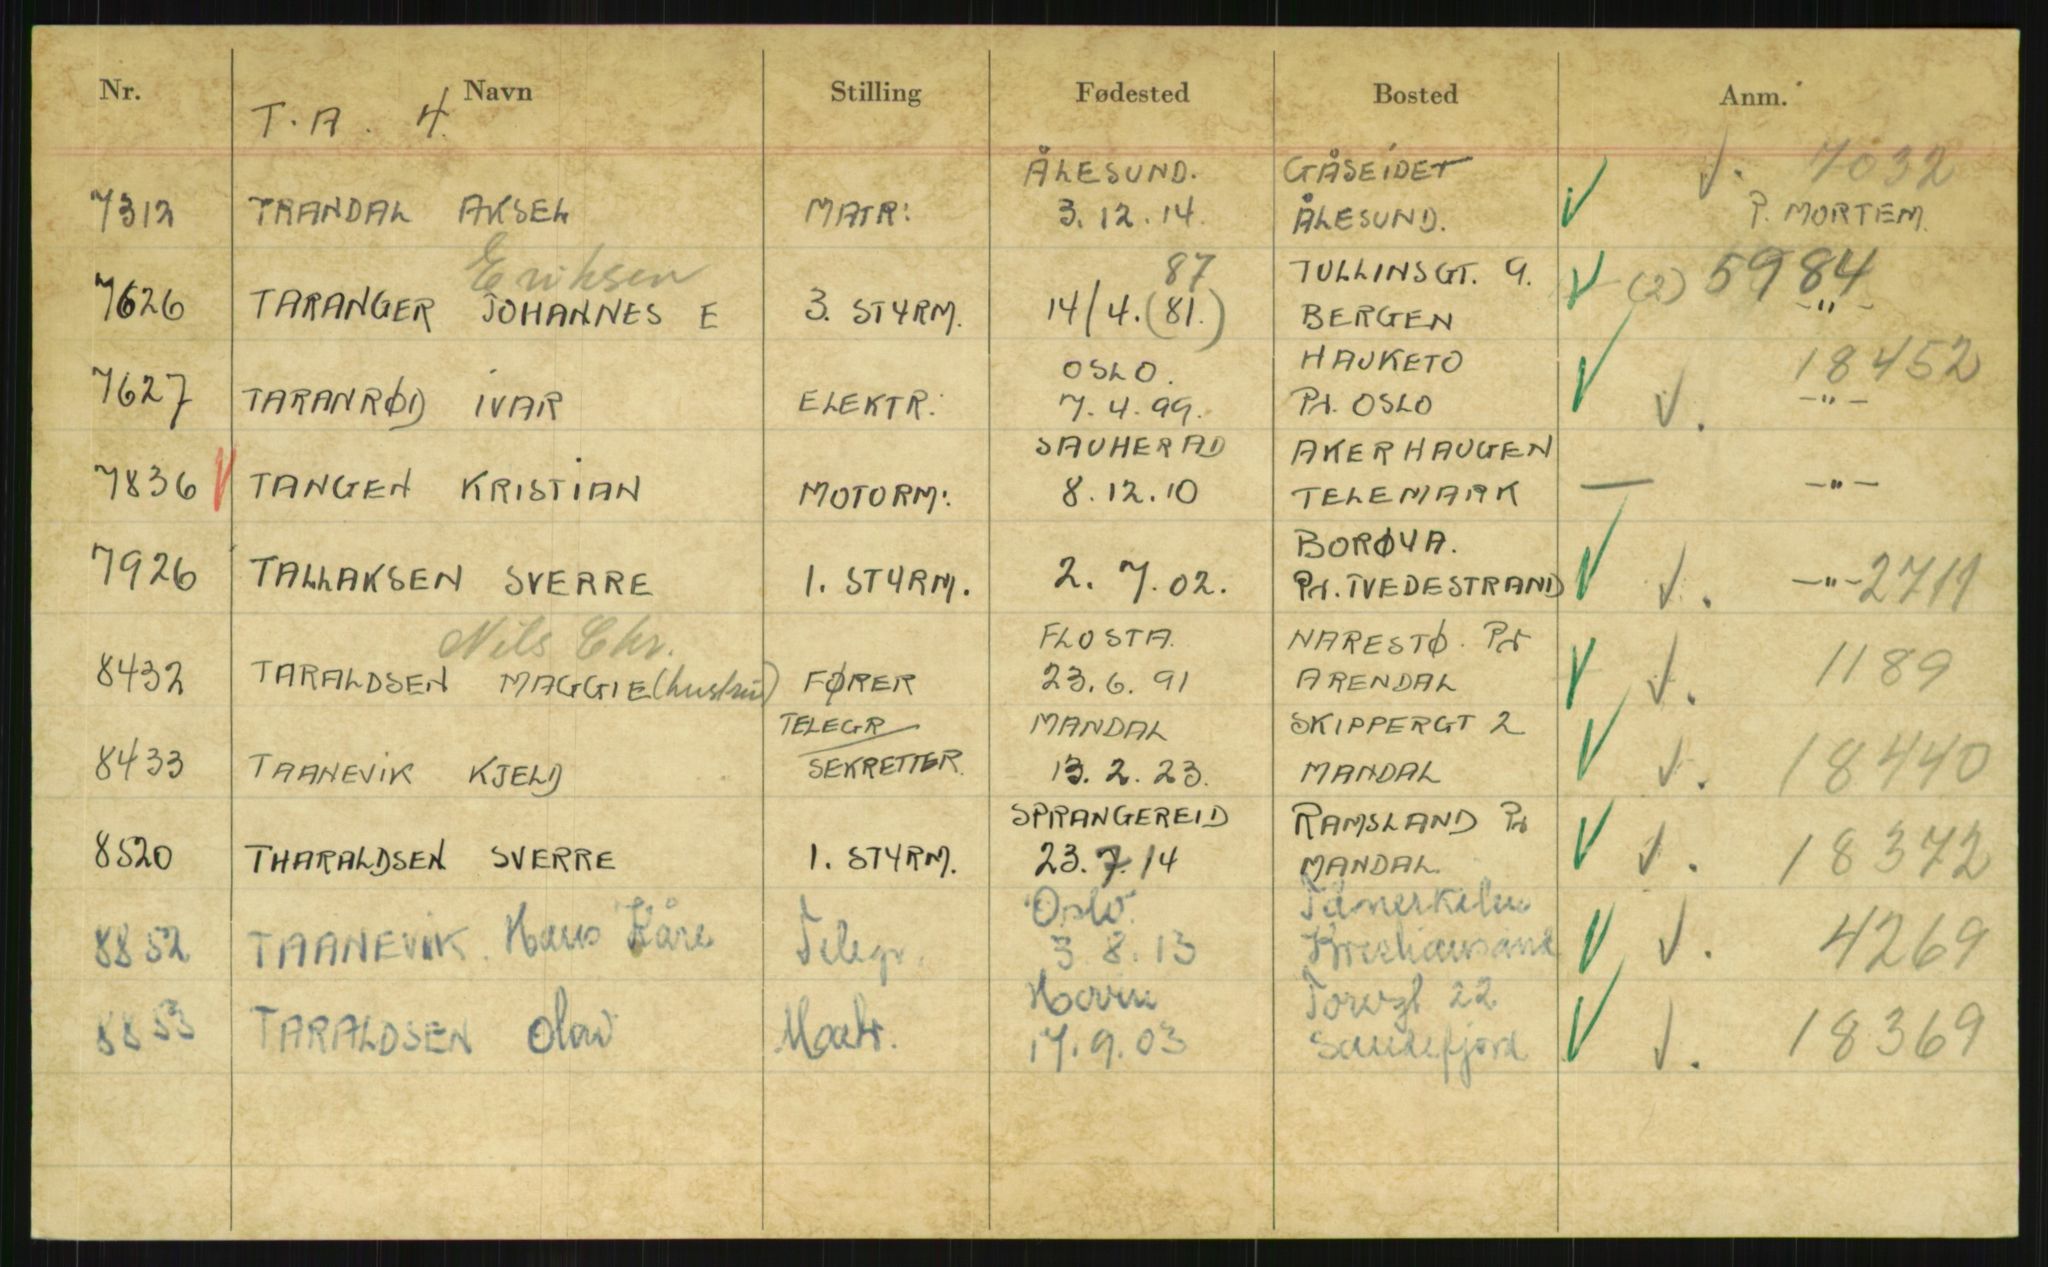 Nr. Navn Stilling Fødested Bosted Anm.
T.A. 4.
ÅLESUND. GÅSEIDET √. 7032
7312 TRANDAL AKSEL MATR: 3.12.14. ÅLESUND. √ P. MORTEM.
Eriksen 87 TULLINSGT. 9. √ (2) 5984
7626 TARANGER JOHANNES E 3. STYRM. 14/4.(81.) BERGEN -"-
OSLO. HAUKETO 18452
7627 TARANRØD IVAR ELEKTR: 7.4.99. Pr. OSLO √ √. -"-
SAUHERAD AKERHAUGEN
7836 √ TANGEN KRISTIAN MOTORM: 8.12.10 TELEMARK — -"-
BORØYA.
7926 TALLAKSEN SVERRE 1. STYRM. 2.7.02. Pr. TVEDESTRAND √ √. -"- 2711
Nils Chr. FLOSTA. NARESTØ. Pr
8432 TARALDSEN MAGGIE (hustru) FØRER 23.6.91 ARENDAL √ √. 1189
TELEGR MANDAL SKIPPERGT 2
8433 TAANEVIK KJELD SEKRETTER. 13.2.23. MANDAL √ √. 18440
SPRANGEREID RAMSLAND Pr
8520 THARALDSEN SVERRE 1. STYRM. 23.7.14 MANDAL. √ √. 18372
Oslo.
8852 TAANEVIK. Hans Kåre Telegr. 3.8.13 Kristiansand √ √. 4269
Torvgt 22
8853 TARALDSEN Olav Matr. 17.9.03 Sandefjord √ √. 18369